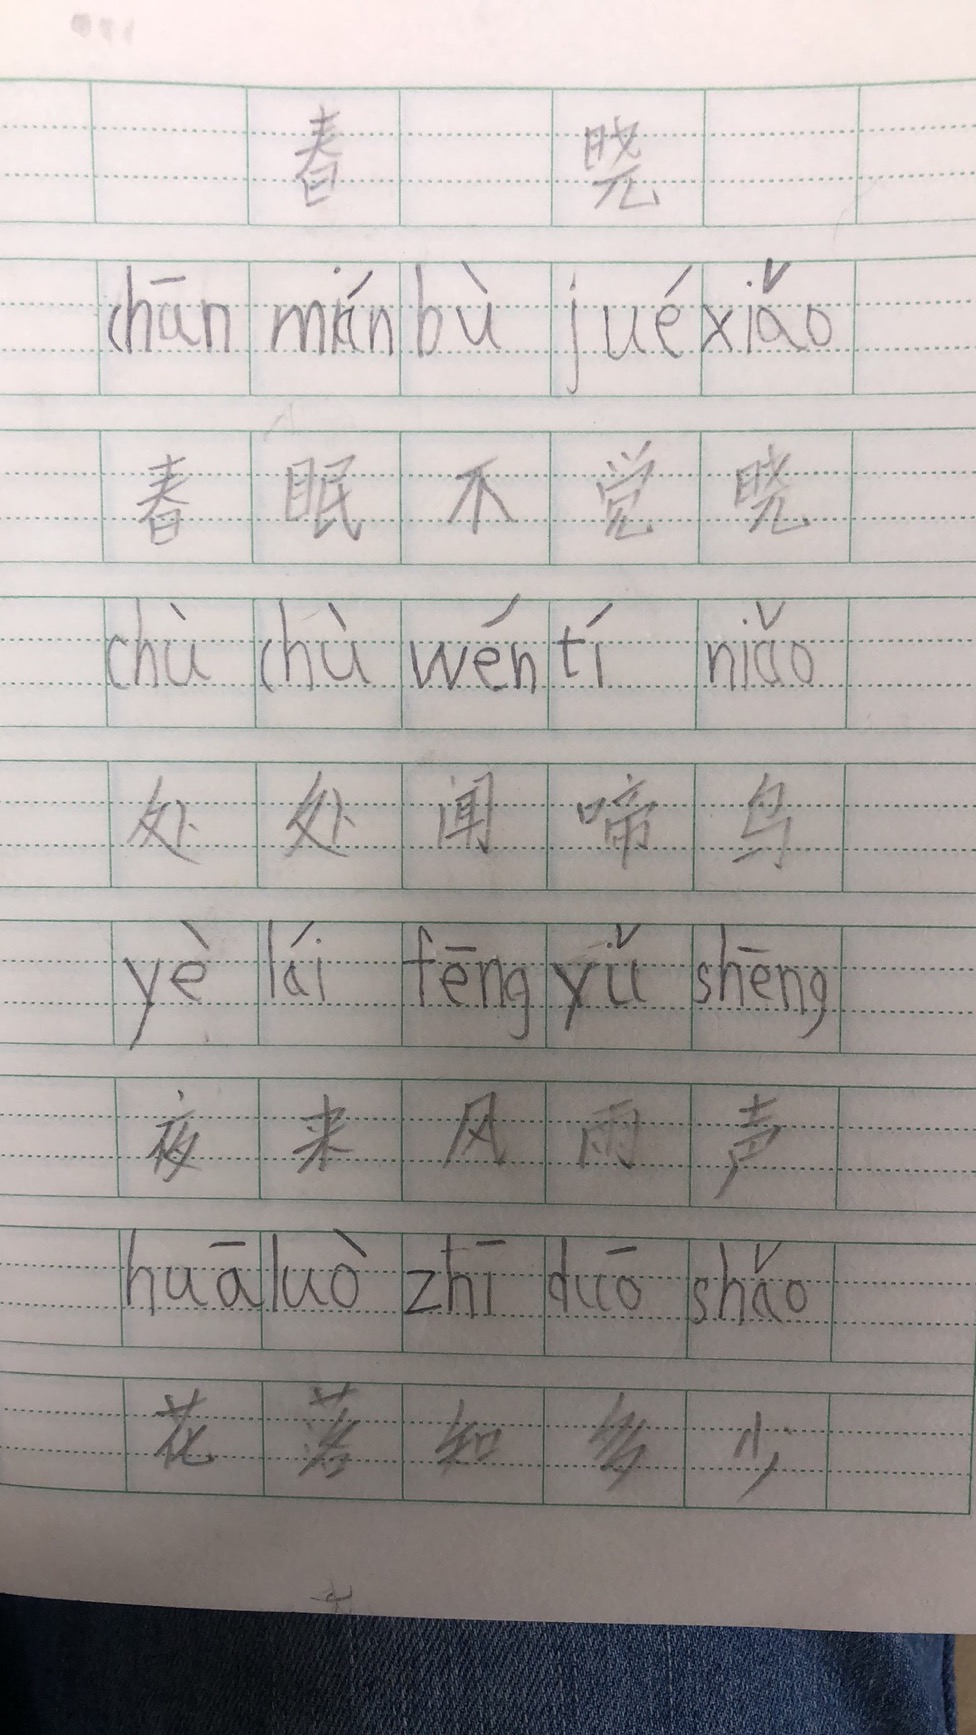 春 晓
chān mián bù jué xiǎo
春 眠 不 觉 晓
chù chù wén tí niǎo
处 处 闻 啼 鸟
yè lái fēng yǔ shēng
夜 来 风 雨 声
huā luò zhī duō shǎo
花 落 知 多 少